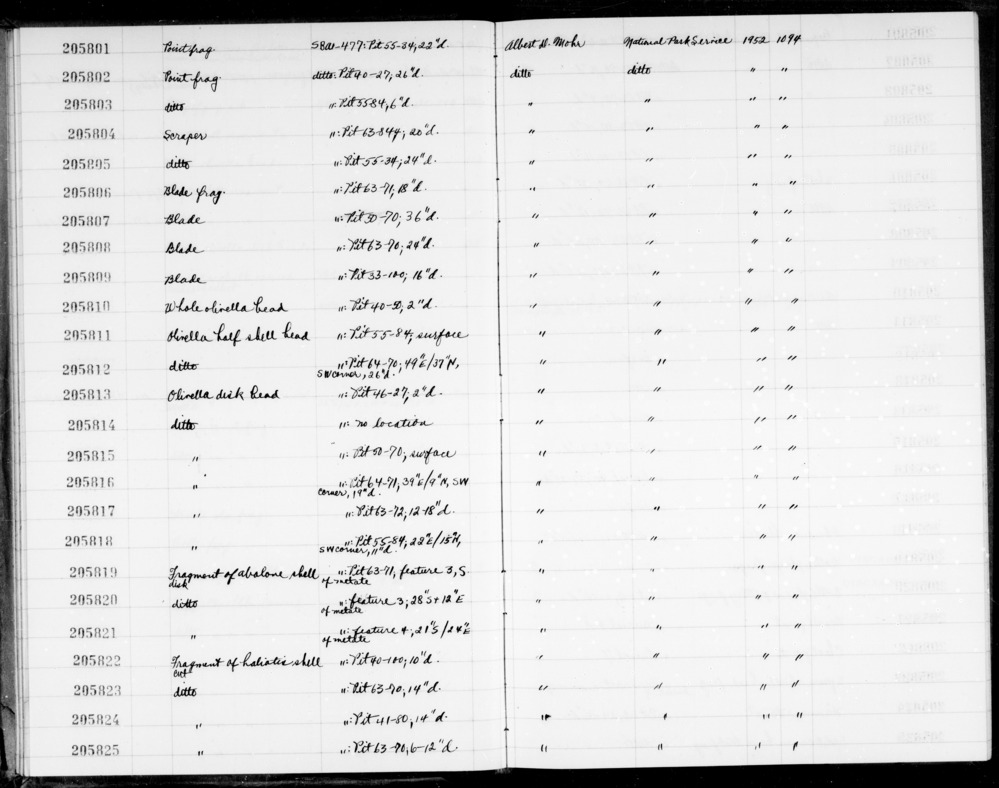 205801 Point frag. SBa-477: Pit 55-34; 22"d. Albert D. Mohr National Park Service 1952 1094
205802 Point frag. ditto: Pit 40-27; 26"d. ditto ditto " "
205803 ditto ": Pit 55 84, 6"d. " " " "
205804 Scraper ": Pit 63-84; 20"d. " " " "
205805 ditto ": Pit 55-34; 24"d. " " " "
205806 Blade frag. ": Pit 63-71, 18"d. " " " "
205807 Blade ": Pit 50-70; 36"d. " " " "
205808 Blade ": Pit 63-70; 24"d. " " " "
205809 Blade ": Pit 33-100; 16"d. " " " "
205810 Whole olivella bead ": Pit 40-50, 2"d. " " " "
205811 Olivella half shell bead ": Pit 55-84; surface " " " "
205812 ditto ": Pit 64-70; 49"E/37"N, " " " "
SW corner, 26"d.
205813 Olivella disk bead ": Pit 46-27; 2"d. " " " "
205814 ditto ": no location " " " "
205815 " ": Pit 50-70; surface " " " "
205816 " ": Pit 64-71, 39"E/9"N, SW " " " "
corner, 19"d.
205817 " ": Pit 63-72, 12-18"d. " " " "
205818 " ": Pit 55-84, 28"E/15"N, " " " "
SW corner, 11"d.
205819 Fragment of abalone shell ": Pit 63-71, feature 3, S. " " " "
disk of metate
205820 ditto ": feature 3; 28"S + 12"E " " " "
of metate
205821 " ": feature 4; 21"S/24"E " " " "
of metate
205822 Fragment of haliotis shell ": Pit 40-100; 10"d. " " " "
cut
205823 ditto ": Pit 63-70; 14"d. " " " "
205824 " ": Pit 41-80; 14"d. " " " "
205825 " ": Pit 63-70, 6-12"d. " " " "